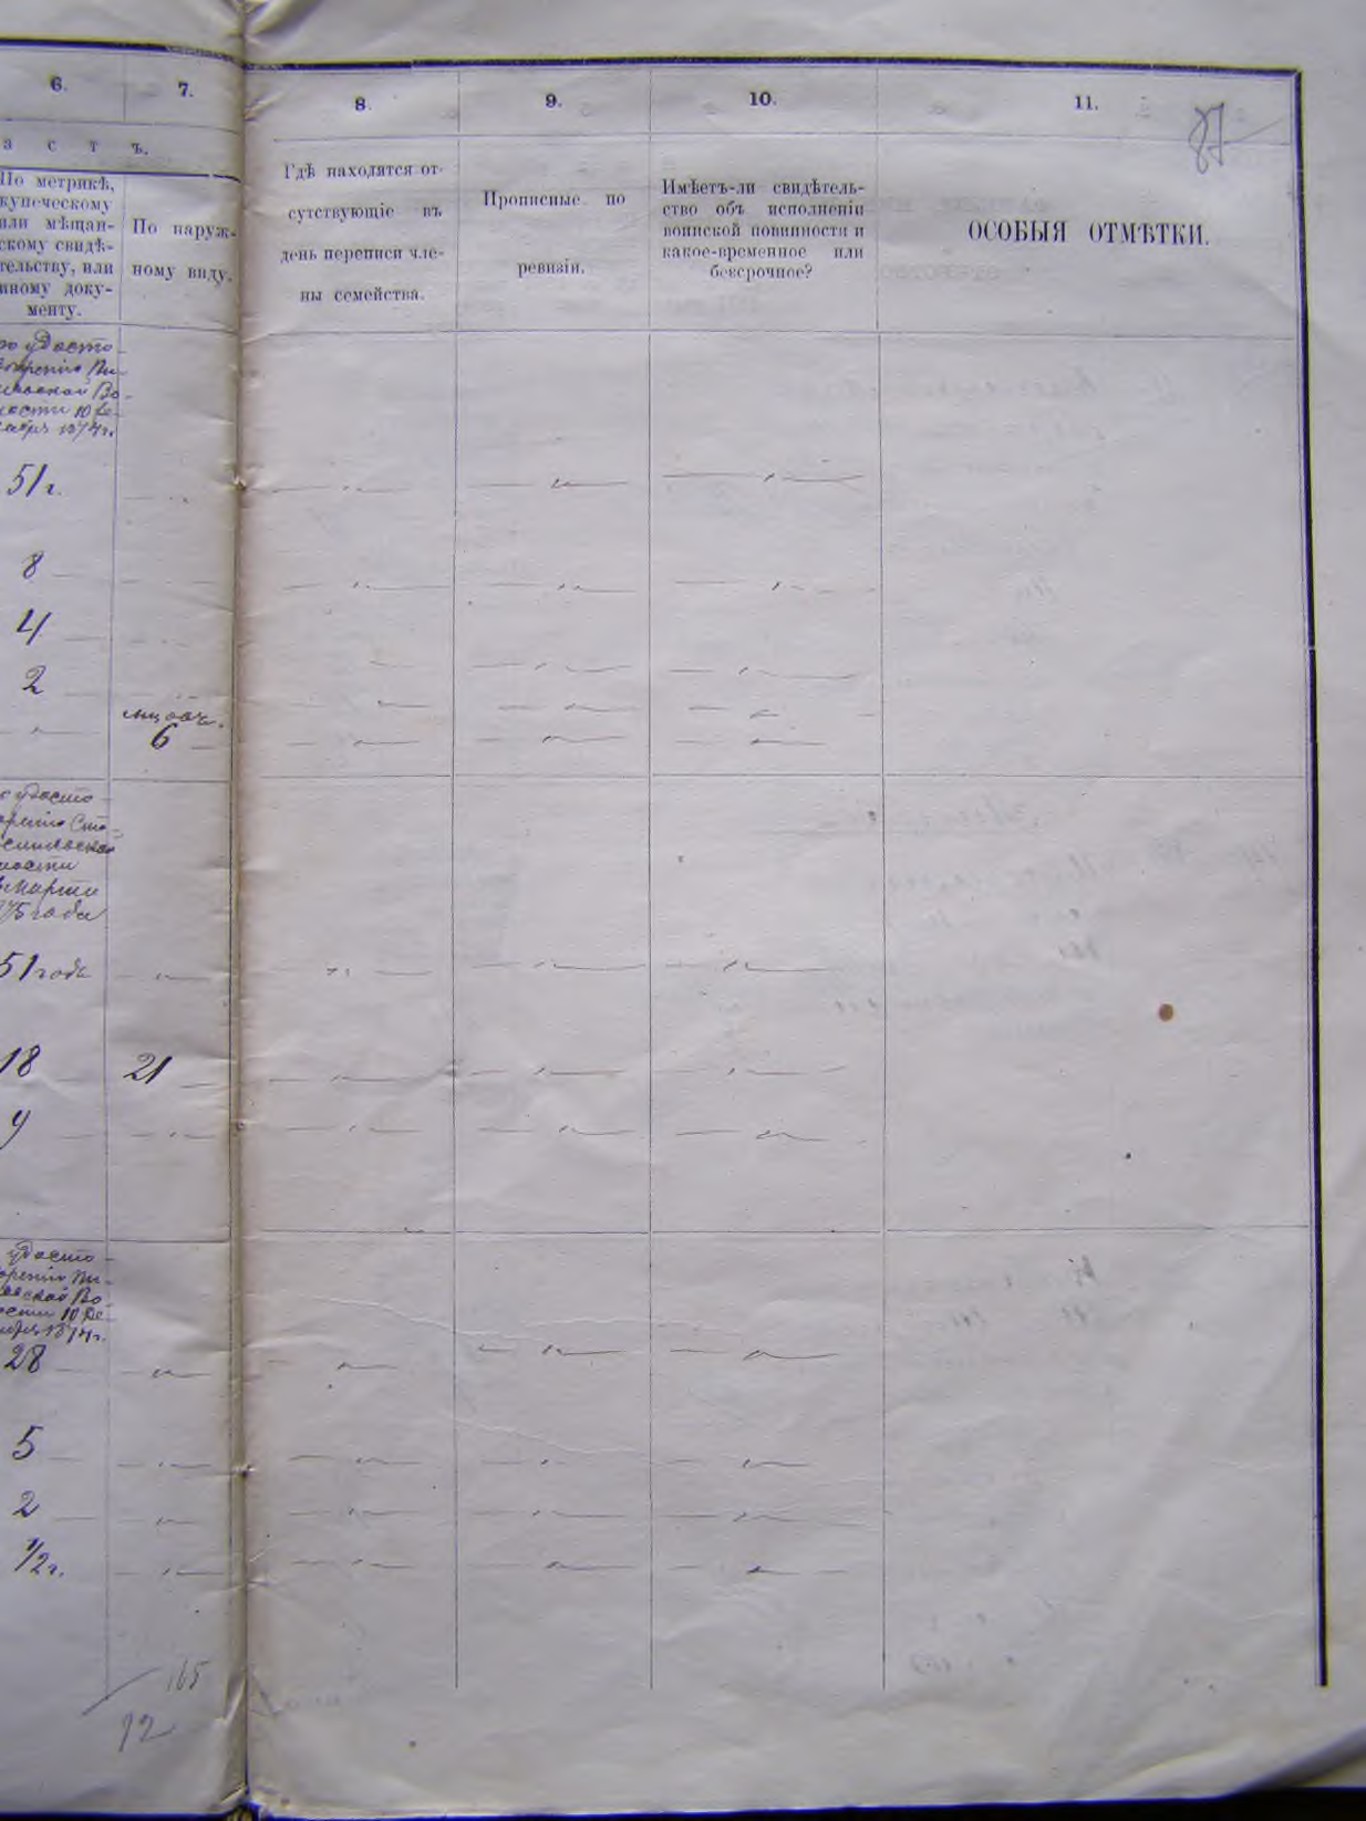 6.
7.
8.
9.
10.
11.
87
а с т ъ.
По метрикѣ,
купеческому
или мѣщан-
скому свидѣ-
тельству, или
иному доку-
менту.
По наруж-
ному виду.
Гдѣ находятся от-
сутствующіе въ
день переписи чле-
ны семейства.
Прописные по
ревизіи.
Имѣетъ-ли свидѣтель-
ство объ исполненіи
воинской повинности и
какое-временное или
безсрочное?
ОСОБЫЯ ОТМѢТКИ.
по удосто-
вѣренію
Во-
лости 10 Де-
кабря 1874 г.
51 г.
8
4
2
6
удосто-
вѣренію Ста-
лости
Марта
1875 года
51 года
18 21
9
удосто-
вѣренію
Во-
лости 10 Де-
кабря 1874 г.
28
5
2
1/2 г.
165
92